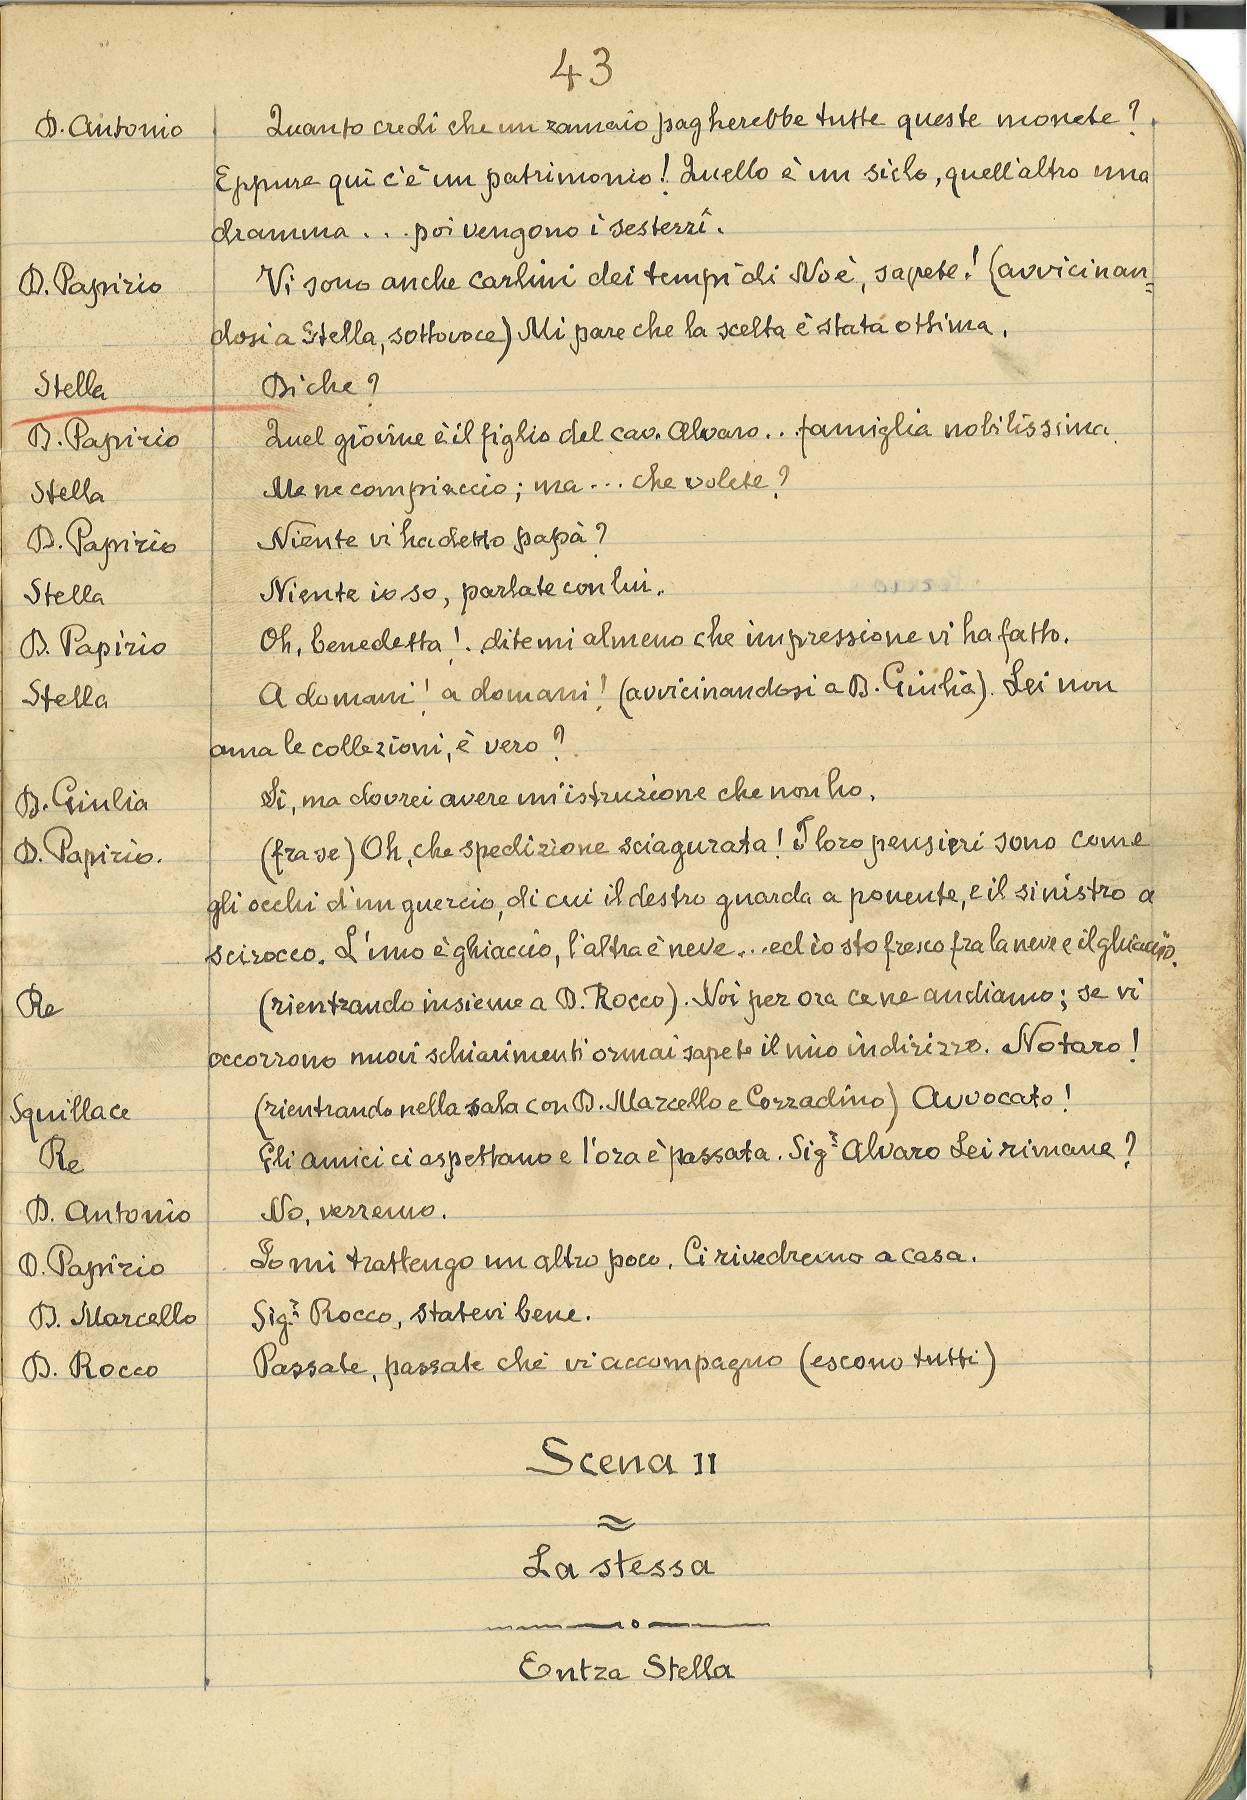 43
D. Antonio Quanto credi che un ramaio pagherebbe tutte queste monete?
Eppure qui c'è un patrimonio! Quello è un siclo, quell'altro una
dramma... poi vengono i sesterzî.
D. Papirio Vi sono anche carlini dei tempi di Noè, sapete! (avvicinan=
dosi a Stella, sottovoce) Mi pare che la scelta è stata ottima.
Stella Di che?
D. Papirio Quel giovine è il figlio del cav. Alvaro... famiglia nobilissima.
Stella Me ne compiaccio; ma... che volete?
D. Papirio Niente vi ha detto papà?
Stella Niente io so, parlate con lui.
D. Papirio Oh, benedetta!.. ditemi almeno che impressione vi ha fatto.
Stella A domani! a domani! (avvicinandosi a D. Giulia). Lei non
ama le collezioni, è vero?
D. Giulia Si, ma dovrei avere un'istruzione che non ho.
D. Papirio. (fra se) Oh, che spedizione sciagurata! I loro pensieri sono come
gli occhi d'un guercio, di cui il destro guarda a ponente, e il sinistro a
scirocco. L'uno è ghiaccio, l'altra è neve... ed io sto fresco fra la neve e il ghiaccio.
Re (rientrando insieme a D. Rocco). Noi per ora ce ne andiamo; se vi
occorrono nuovi schiarimenti ormai sapete il mio indirizzo. Notaro!
Squillace (rientrando nella sala con D. Marcello e Corradino) Avvocato!
Re Gli amici ci aspettano e l'ora è passata. Sigr Alvaro Lei rimane?
D. Antonio No, verremo.
D. Papirio Io mi trattengo un altro poco. Ci rivedremo a casa.
D. Marcello Sigr Rocco, statevi bene.
D. Rocco Passate, passate chè vi accompagno (escono tutti)
Scena 11
La stessa
Entra Stella